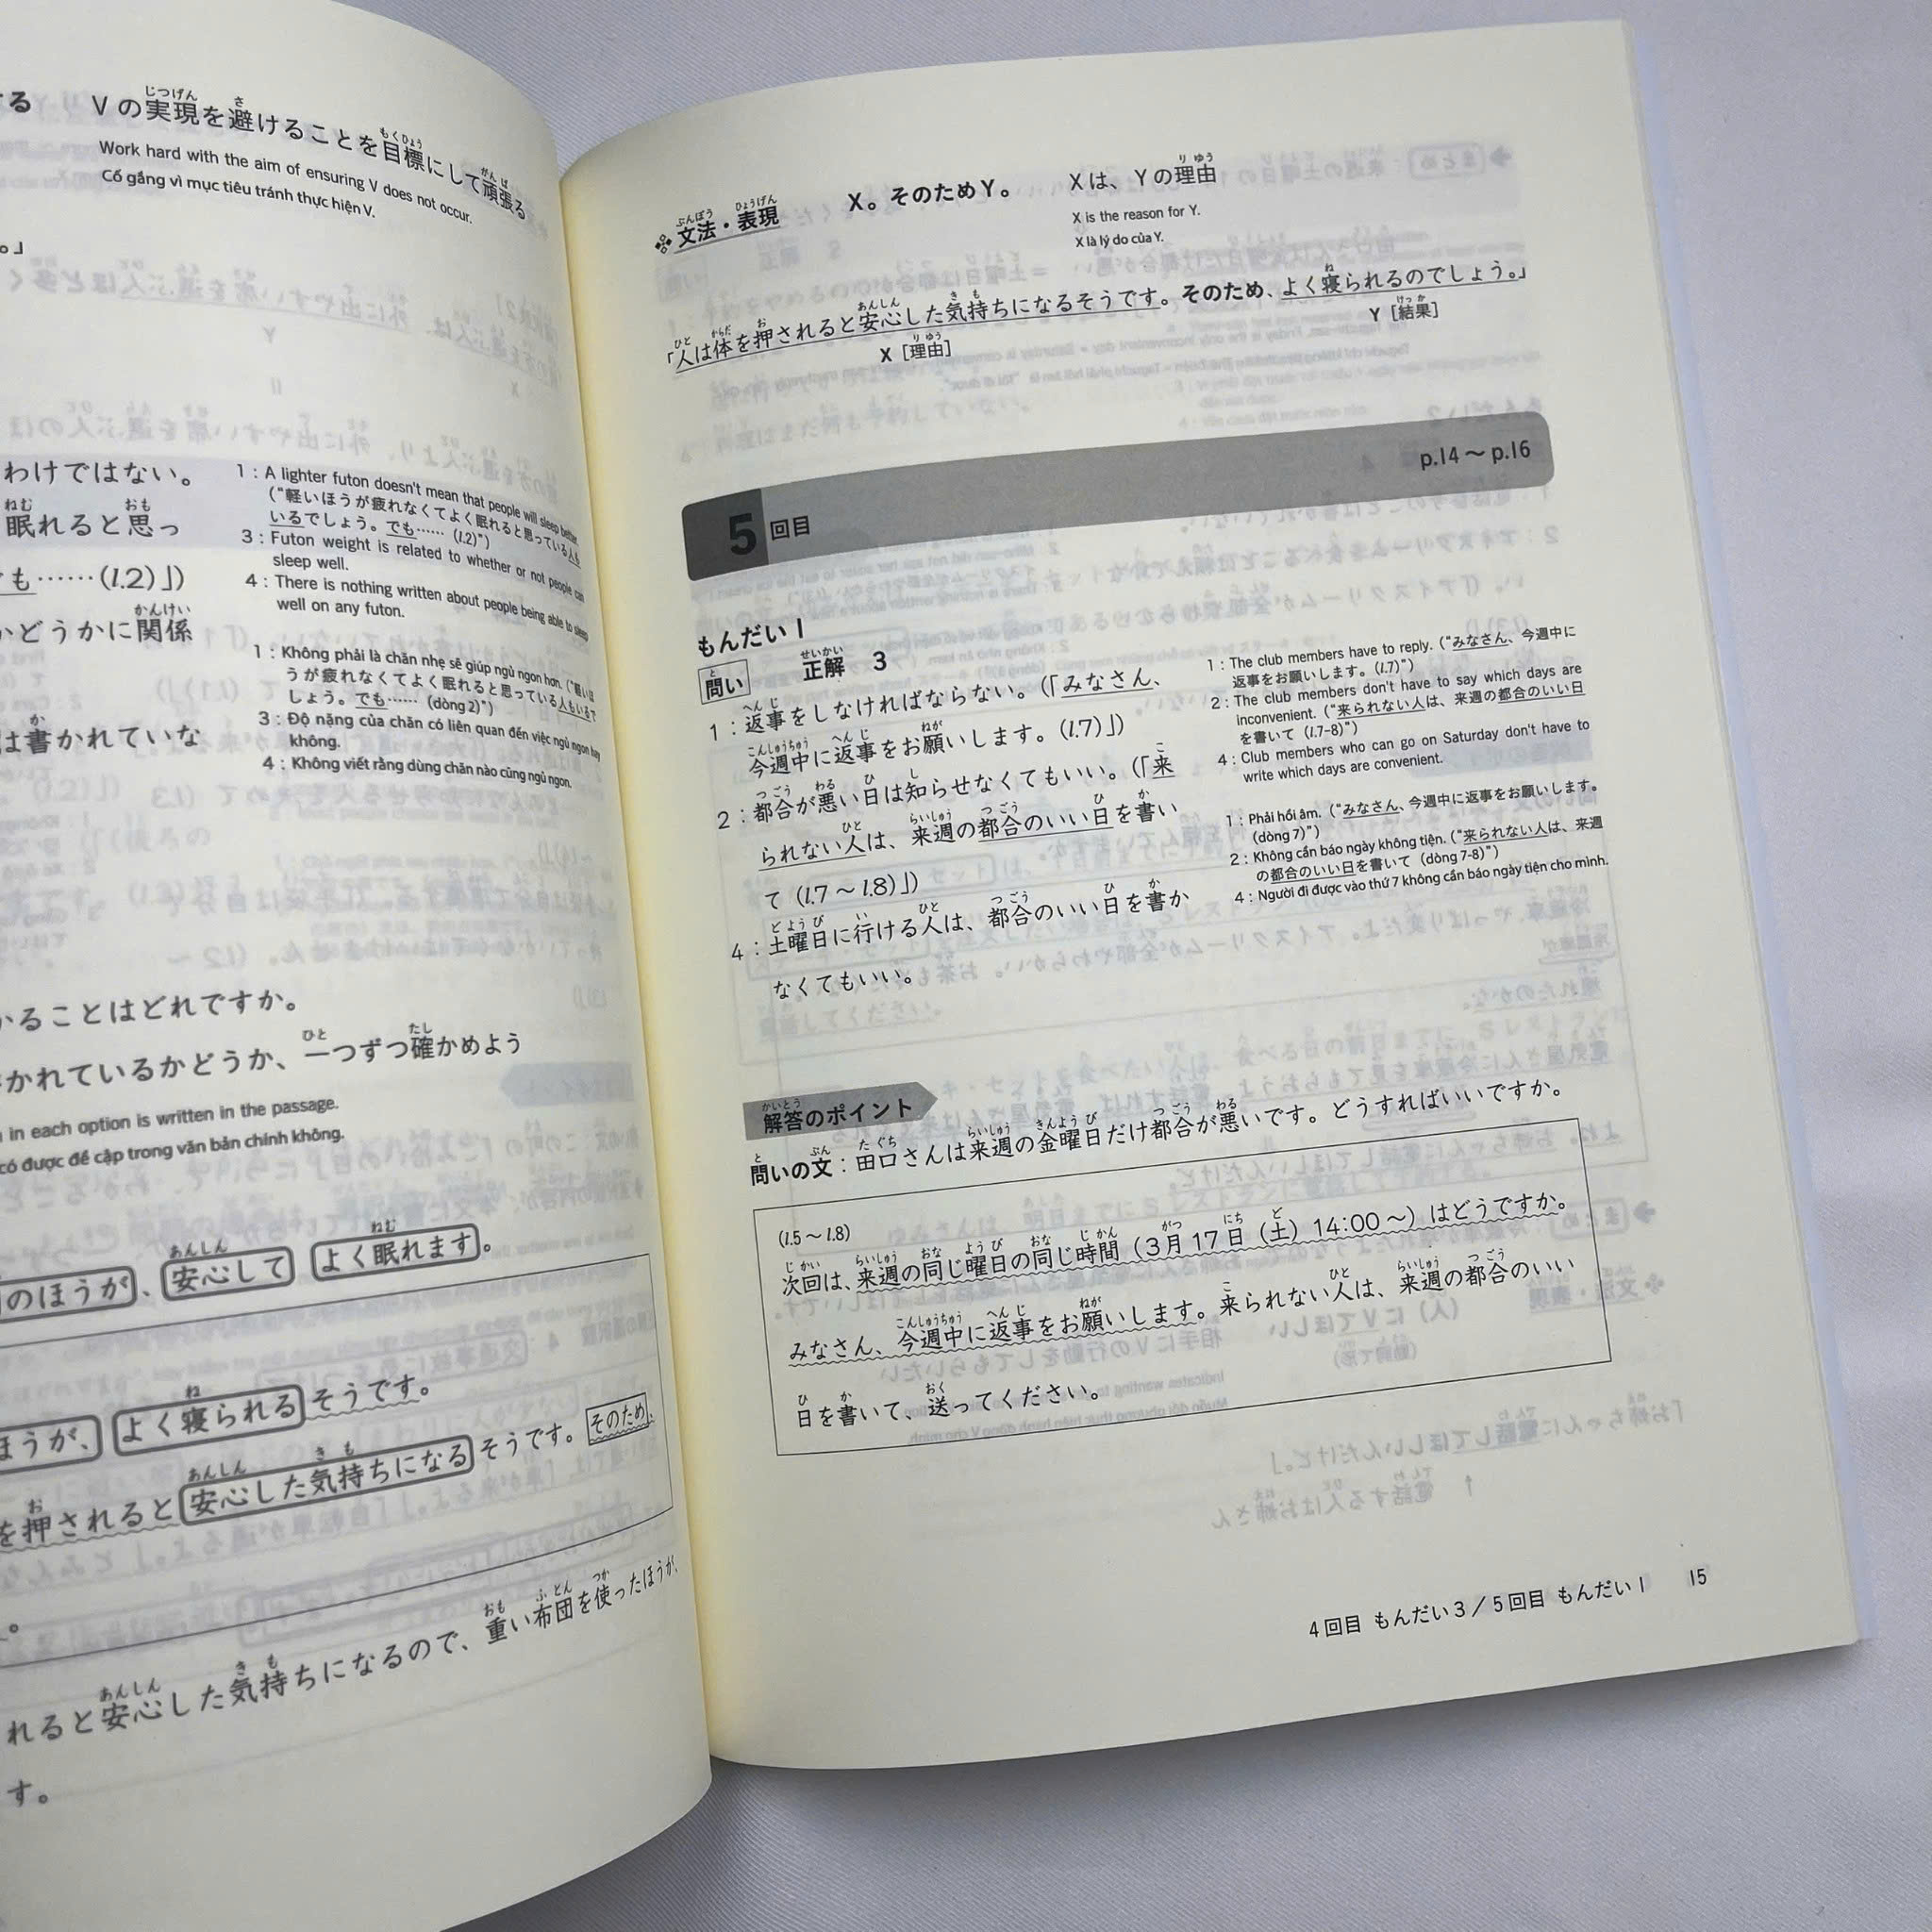 する Vの実現を避けることを目標にして頑張る
Work hard with the aim of ensuring V does not occur.
Cố gắng vì mục tiêu tránh thực hiện V.
。」
わけではない。
眠れると思っ
も……(l.2)」)
かどうかに関係
は書かれていな
1：A lighter futon doesn't mean that people will sleep better.
("軽いほうが疲れなくてよく眠れると思っている人も
いるでしょう。でも……(l.2)")
3：Futon weight is related to whether or not people can
sleep well.
4：There is nothing written about people being able to sleep
well on any futon.
1：Không phải là chăn nhẹ sẽ giúp ngủ ngon hơn. ("軽いほ
うが疲れなくてよく眠れると思っている人もいるで
しょう。でも……(dòng 2)")
3：Độ nặng của chăn có liên quan đến việc ngủ ngon hay
không.
4：Không viết rằng dùng chăn nào cũng ngủ ngon.
かることはどれですか。
かれているかどうか、一つずつ確かめよう
in each option is written in the passage.
có được đề cập trong văn bản chính không.
のほうが、安心して よく眠れます。
ほうが、よく寝られるそうです。
を押されると安心した気持ちになるそうです。そのため、
。
れると安心した気持ちになるので、重い布団を使ったほうが、
す。
文法・表現 X。そのためY。 Xは、Yの理由
X is the reason for Y.
X là lý do của Y.
「人は体を押されると安心した気持ちになるそうです。そのため、よく寝られるのでしょう。」
X［理由］ Y［結果］
5回目 p.14～p.16
もんだい1
問い 正解 3
1：返事をしなければならない。(「みなさん、
今週中に返事をお願いします。(l.7)」)
2：都合が悪い日は知らせなくてもいい。(「来
られない人は、来週の都合のいい日を書い
て(l.7～l.8)」)
4：土曜日に行ける人は、都合のいい日を書か
なくてもいい。
1：The club members have to reply. ("みなさん、今週中に
返事をお願いします。(l.7)")
2：The club members don't have to say which days are
inconvenient. ("来られない人は、来週の都合のいい日
を書いて(l.7-8)")
4：Club members who can go on Saturday don't have to
write which days are convenient.
1：Phải hồi âm. ("みなさん、今週中に返事をお願いします。
(dòng 7)")
2：Không cần báo ngày không tiện. ("来られない人は、来週
の都合のいい日を書いて(dòng 7-8)")
4：Người đi được vào thứ 7 không cần báo ngày tiện cho mình.
解答のポイント
問いの文：田口さんは来週の金曜日だけ都合が悪いです。どうすればいいですか。
(l.5～l.8)
次回は、来週の同じ曜日の同じ時間（3月17日（土）14:00～）はどうですか。
みなさん、今週中に返事をお願いします。来られない人は、来週の都合のいい
日を書いて、送ってください。
4回目 もんだい3／5回目 もんだい1 15